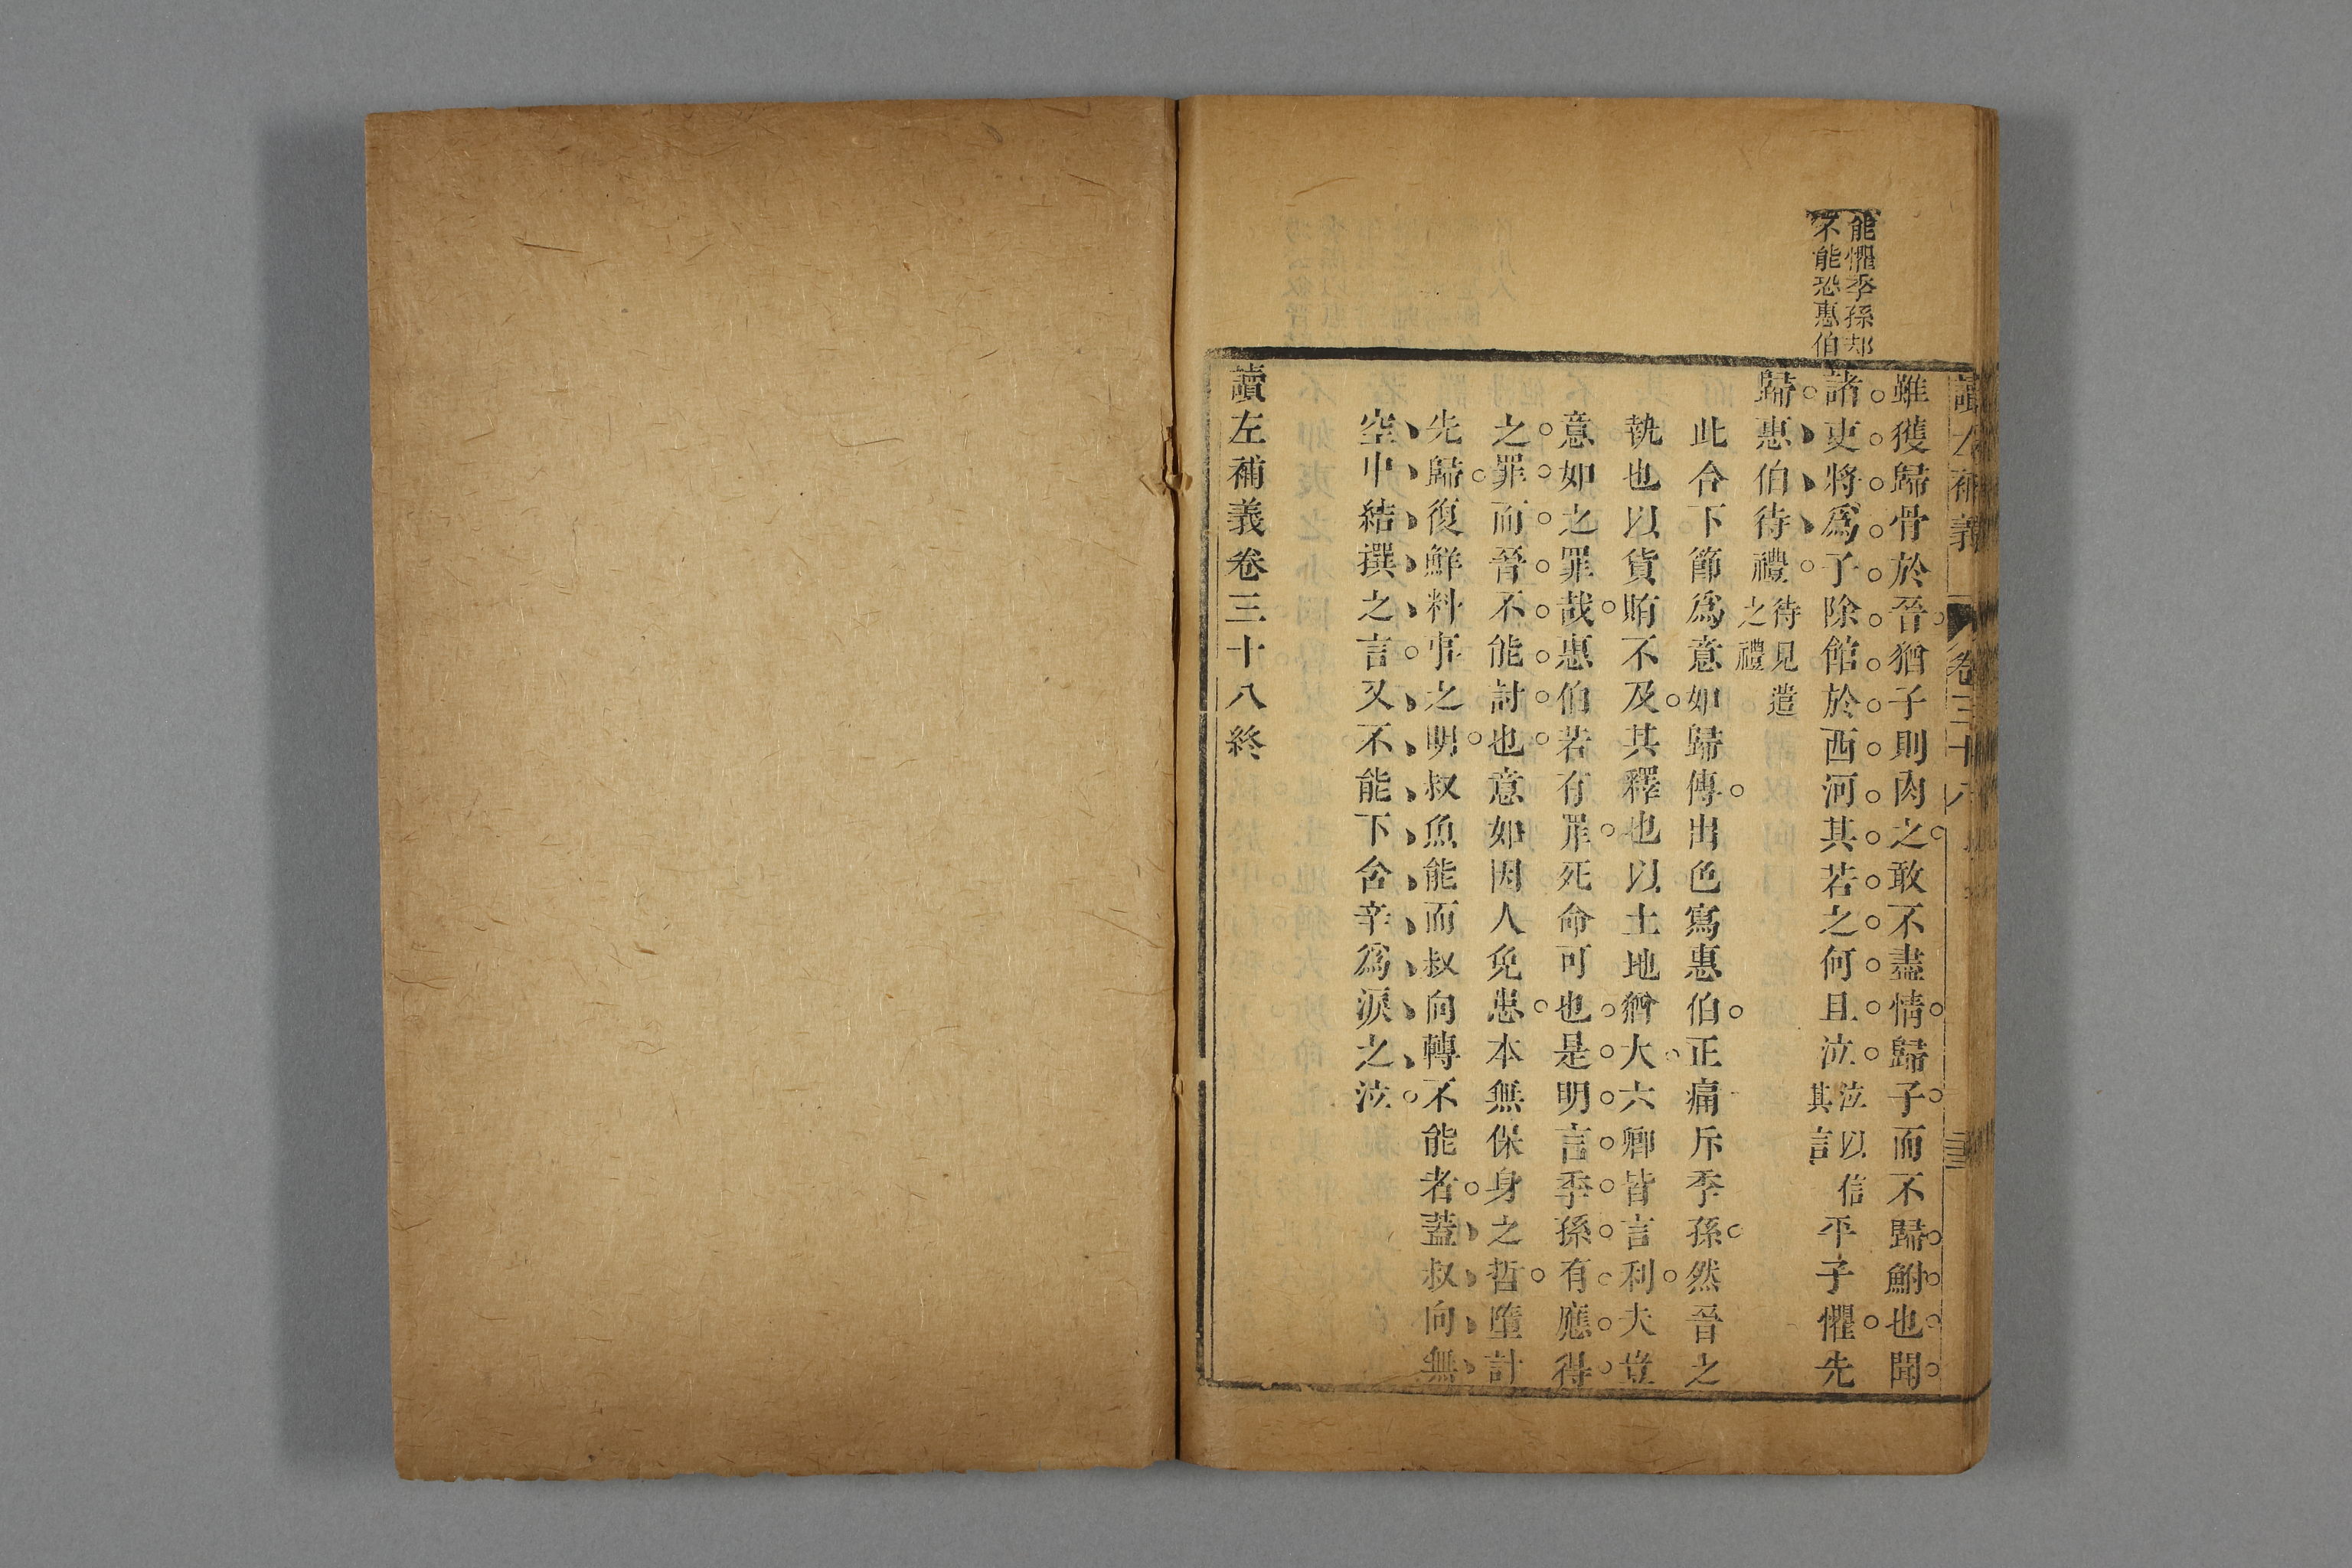 讀左補義 卷三十八
能懼季孫却
不能恐惠伯
雖獲歸骨於晉猶子則肉之敢不盡情歸子而不歸鮒也聞
諸吏將爲子除館於西河其若之何且泣泣以信其言平子懼先
歸惠伯待禮待見遣之禮
此合下節爲意如歸傳出色寫惠伯正痛斥季孫然晉之
執也以貨賄不及其釋也以土地猶大六卿皆言利夫豈
意如之罪哉惠伯若有罪死命可也是明言季孫有應得
之罪而晉不能討也意如因人免患本無保身之哲墮計
先歸復鮮料事之明叔魚能而叔向轉不能者蓋叔向無
空中結撰之言又不能下含辛爲淚之泣
讀左補義卷三十八終